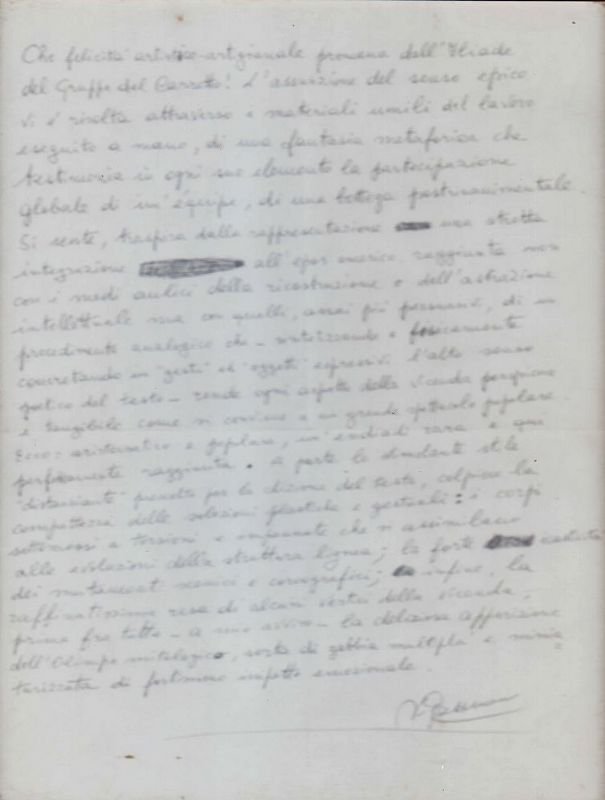 Che felicità artistico-artigianale promana dall'Iliade
del Gruppo del Carretto! L'assunzione del senso epico
vi è risolta attraverso i materiali umili del lavoro
eseguito a mano, di una fantasia metaforica che
testimonia in ogni suo elemento la partecipazione
globale di un'équipe, di una bottega postrinascimentale.
Si sente, traspira dalla rappresentazione una stretta
integrazione all'epos omerico raggiunta non
con i modi aulici della ricostruzione o dell'astrazione
intellettuale ma con quelli, assai più persuasivi, di un
procedimento analogico che – sintetizzando e
concretando in "gesti" ed "oggetti" espressivi l'alto senso
poetico del testo – rende ogni aspetto della vicenda
e tangibile come si conviene a un grande spettacolo popolare.
Ecco: aristocratico e popolare, un'endiadi rara e qui
perfettamente raggiunta. A parte lo stile
"distanziante" prescelto per la dizione del testo, colpisce la
compattezza delle soluzioni plastiche e gestuali: i corpi
sottomessi a torsioni e impennate che si assimilano
alle evoluzioni della struttura lignea; la forte
dei scenici e coreografici; infine, la
raffinatissima resa di alcuni vertici della vicenda,
prima fra tutte – a mio avviso – la deliziosa apparizione
dell'Olimpo mitologico, sorta di gabbia multipla e minia=
turizzata di fortissimo impatto emozionale.